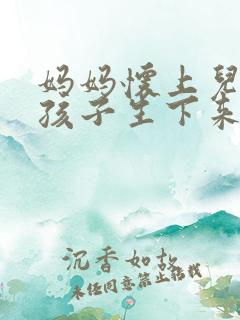 妈妈怀上兒
孩子生下来
沉香如故
未经同意禁止转载